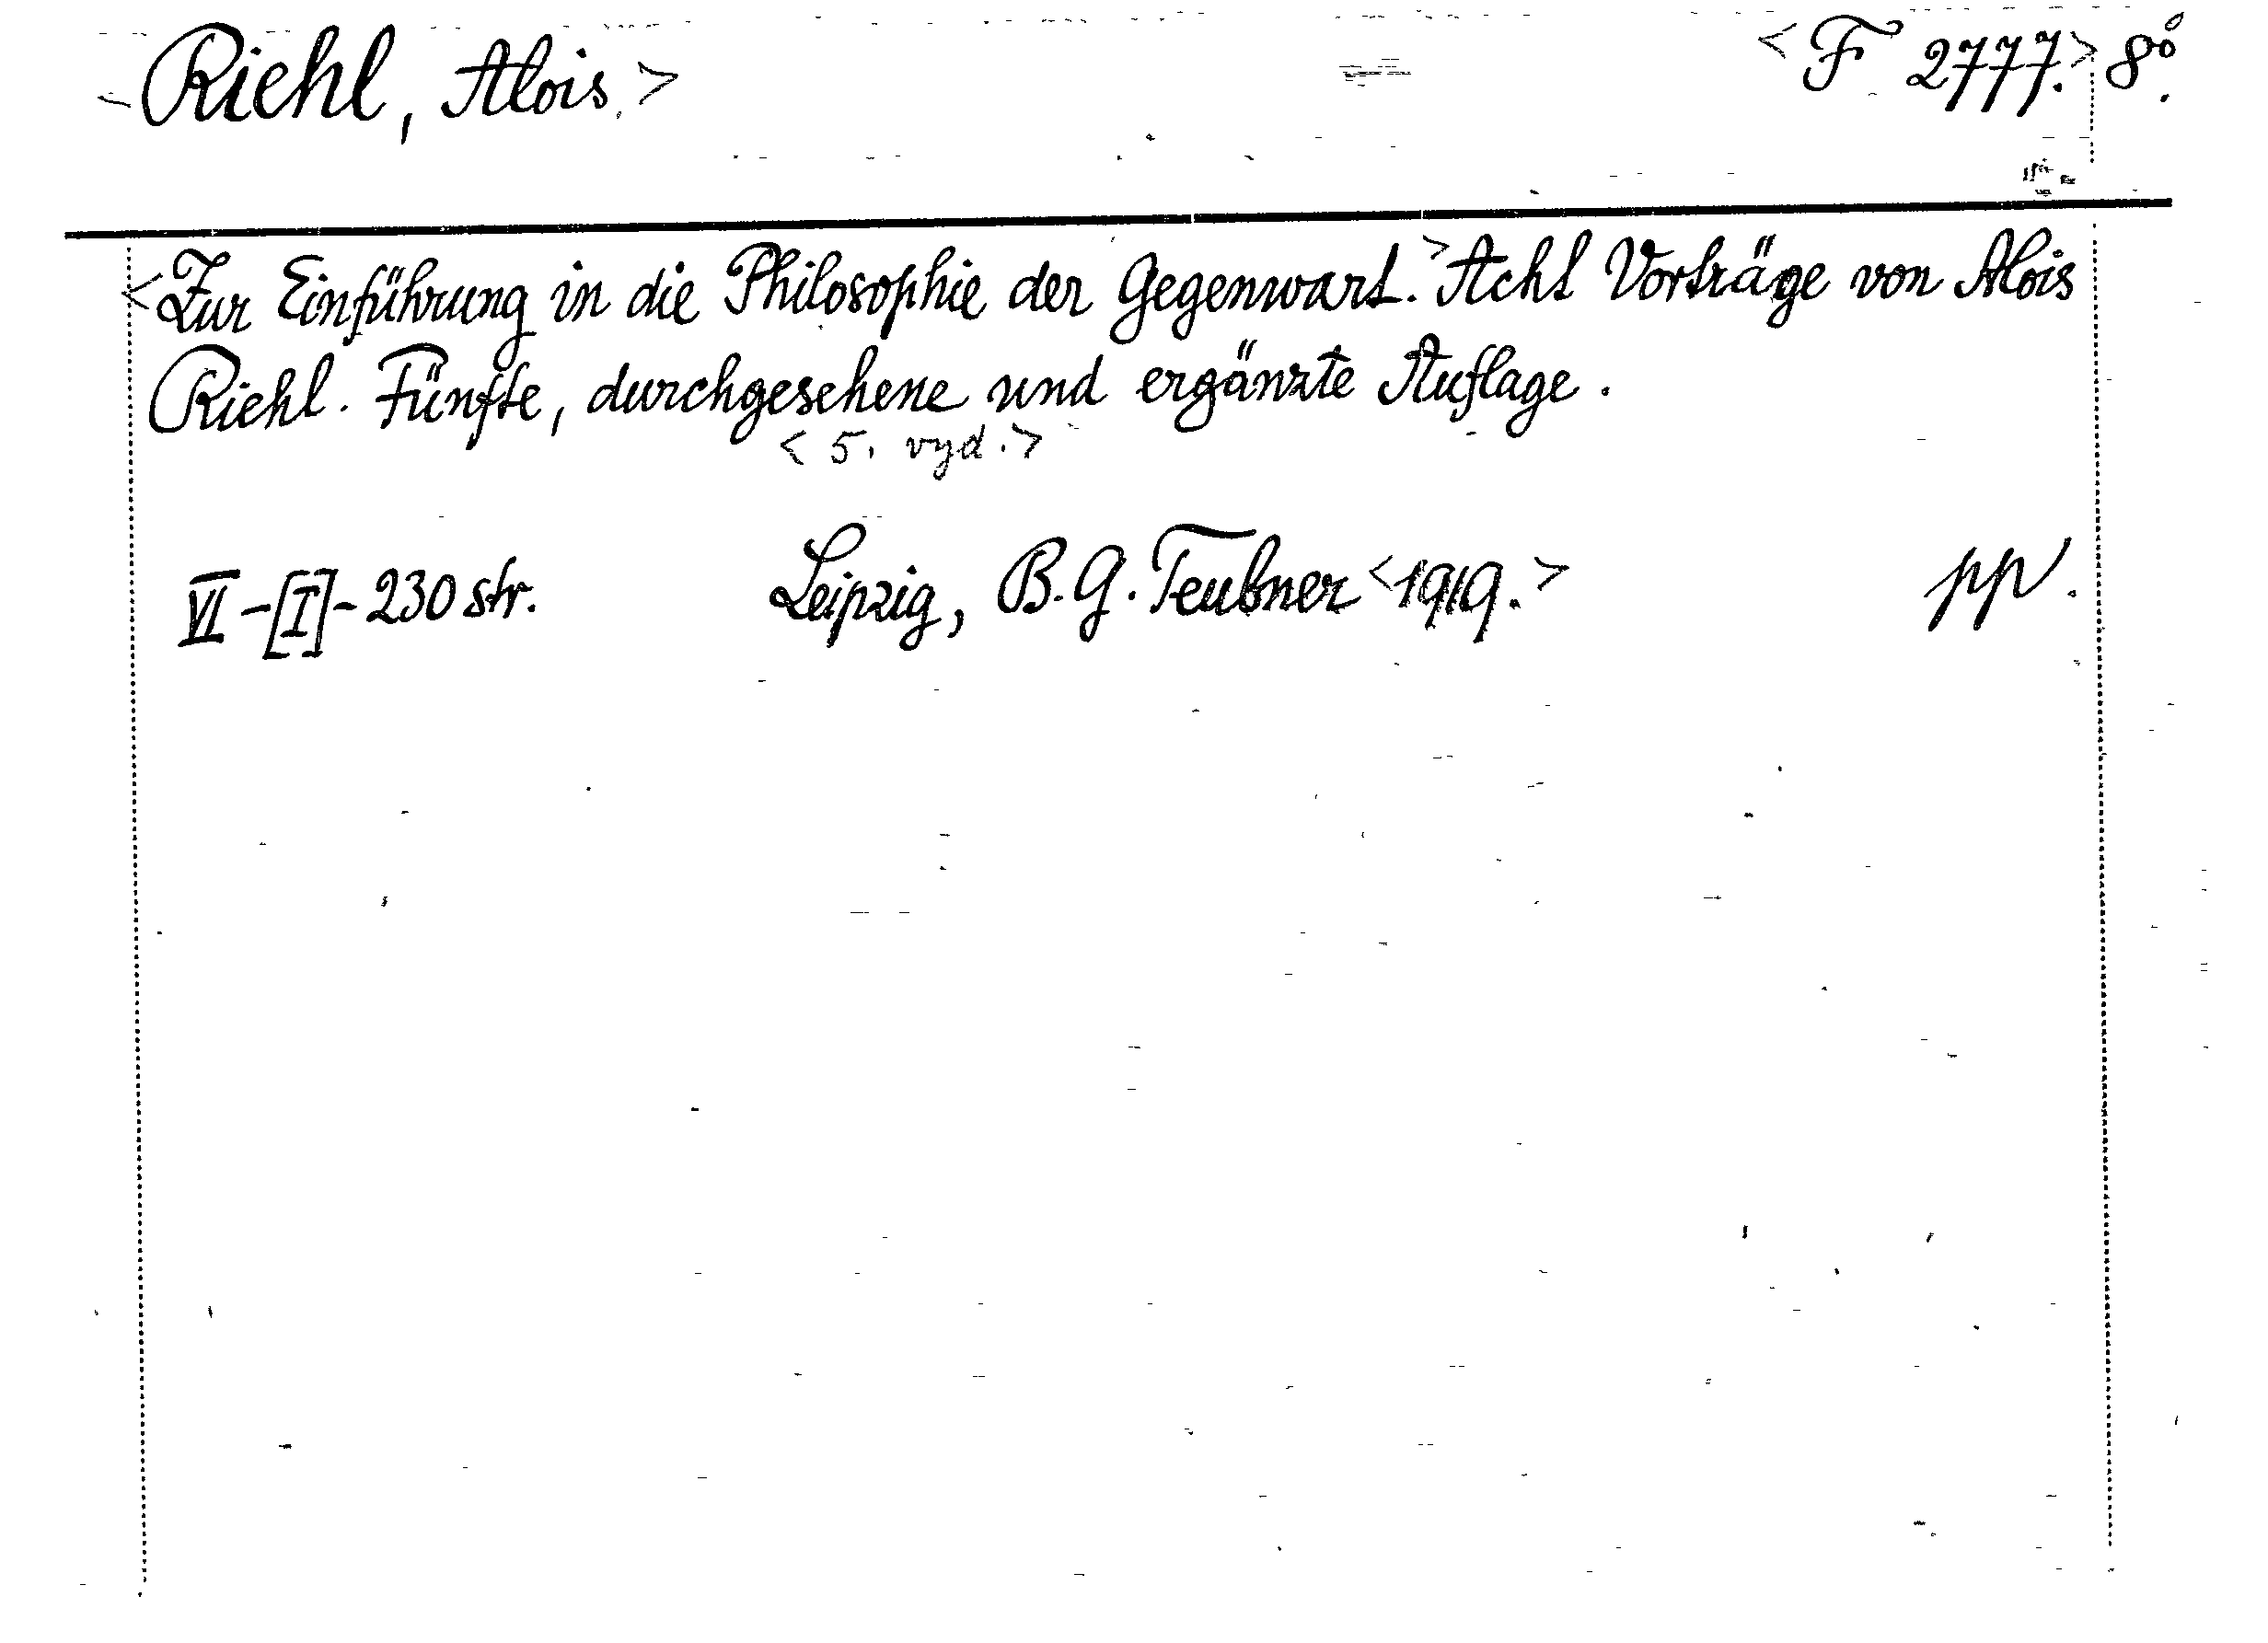 <Riehl, Alois.> <F 2777.> 8°.
<Zur Einführung in die Philosophie der Gegenwart.> Acht Vorträge von Alois
Riehl. Fünfte, durchgesehene und ergänzte Auflage.
<5. vyd.>
VI-[I]-230 str. Leipzig, B. G. Teubner <1919.> pp.